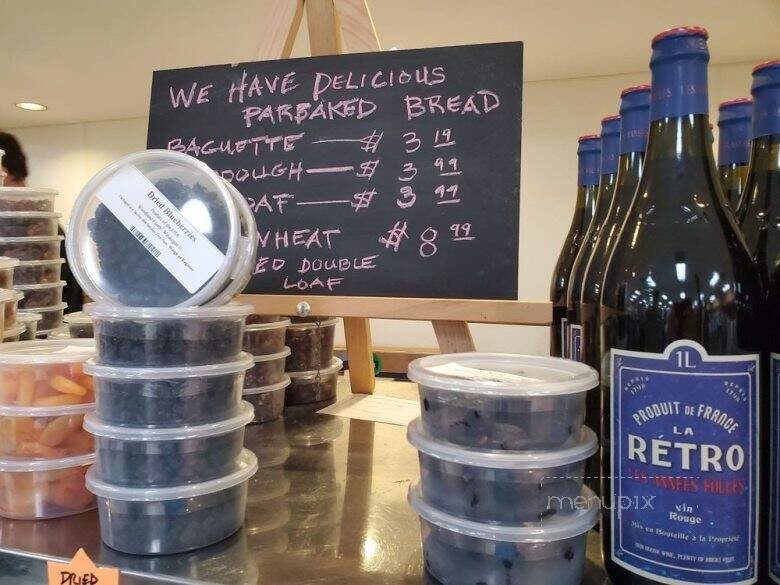 WE HAVE DELICIOUS
PARBAKED BREAD
BAGUETTE — $ 3 19
DOUGH — $ 3 99
OAF — $ 3 99
WHEAT $ 8 99
ED DOUBLE
LOAF
Dried Blueberries
Product of the USA
1L
DEPUIS 1796
DEPUIS 1796
PRODUIT DE FRANCE
LA
RÉTRO
LES ANNÉES FOLLES
vin
Rouge
Mis en Bouteille à la Propriété
menupix
DRIED